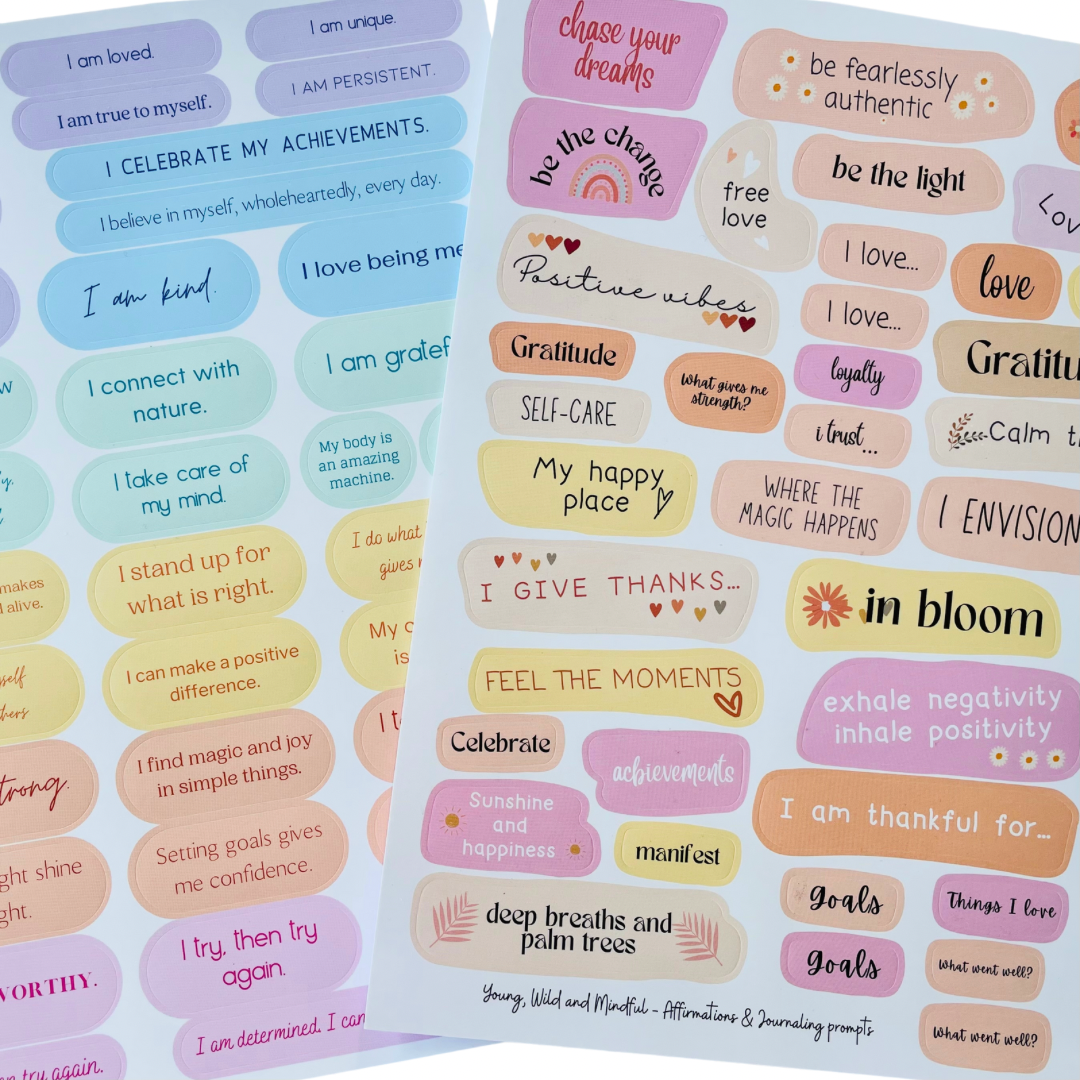 I am loved.
I am unique.
I am true to myself.
I AM PERSISTENT.
I CELEBRATE MY ACHIEVEMENTS.
I believe in myself, wholeheartedly, every day.
I am kind.
I love being me
I connect with
nature.
I am gratef
I take care of
my mind.
My body is
an amazing
machine.
makes
alive.
I stand up for
what is right.
I do what
gives
I can make a positive
difference.
My
is
I find magic and joy
in simple things.
I
ght shine
ght.
Setting goals gives
me confidence.
WORTHY.
I try, then try
again.
try again.
I am determined. I can
chase your
dreams
be fearlessly
authentic
be the change
free
love
be the light
Lov
Positive vibes
I love...
love
I love...
Gratitude
What gives me
strength?
loyalty
Gratitu
SELF-CARE
i trust...
Calm t
My happy
place
WHERE THE
MAGIC HAPPENS
I ENVISION
I GIVE THANKS...
in bloom
FEEL THE MOMENTS
exhale negativity
inhale positivity
Celebrate
achievements
I am thankful for...
Sunshine
and
happiness
manifest
deep breaths and
palm trees
goals
Things I love
goals
What went well?
What went well?
Young, Wild and Mindful - Affirmations & Journaling prompts